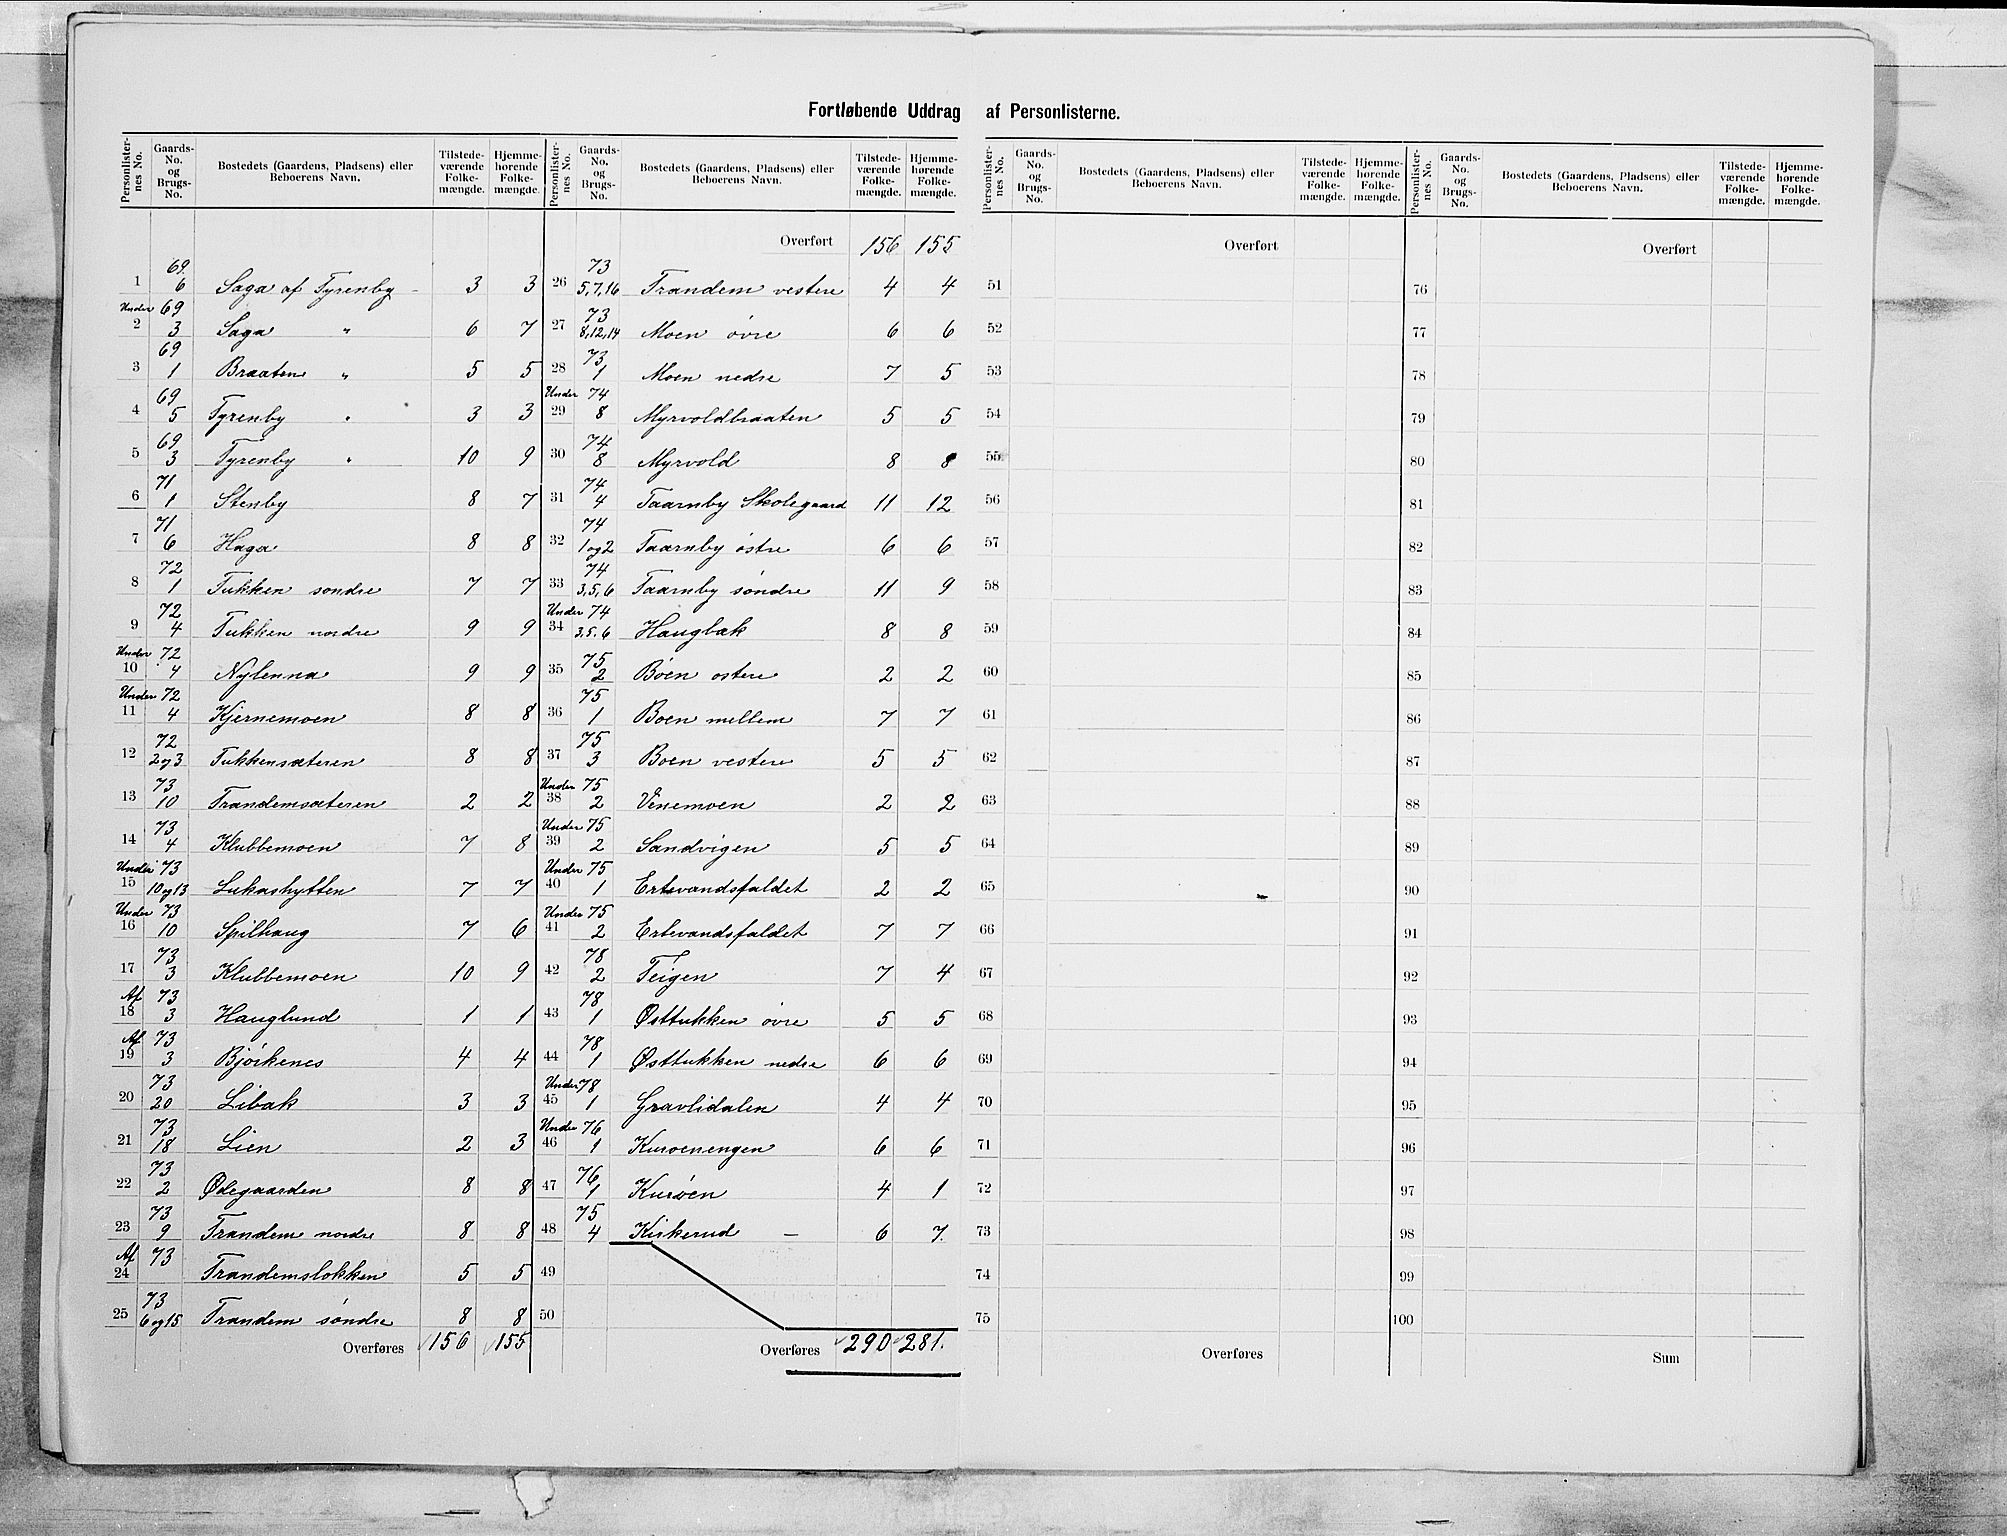 Fortløbende Uddrag af Personlisterne.
Personlister-nes No. | Gaards-No. og Brugs-No. | Bostedets (Gaardens, Pladsens) eller Beboerens Navn. | Tilstede-værende Folke-mængde. | Hjemme-hørende Folke-mængde.
1 | 69. 6 | Saga af Tyrenby - | 3 | 3
Under 2 | 69 3 | Saga " | 6 | 7
3 | 69 1 | Braaten " | 5 | 5
4 | 69 5 | Tyrenby " | 3 | 3
5 | 69 3 | Tyrenby " | 10 | 9
6 | 71 1 | Stenby | 8 | 7
7 | 71 6 | Haga | 8 | 8
8 | 72 1 | Tukken søndre | 7 | 7
9 | 72 4 | Tukken nordre | 9 | 9
Under 10 | 72 4 | Nylenna | 9 | 9
Under 11 | 72 4 | Kjernemoen | 8 | 8
12 | 72 2 og 3 | Tukkensæteren | 8 | 8
13 | 73 10 | Trandemsæteren | 2 | 2
14 | 73 4 | Klubbemoen | 7 | 8
Under 15 | 73 10 og 13 | Lukashytten | 7 | 7
Under 16 | 73 10 | Spilhaug | 7 | 6
17 | 73 3 | Klubbemoen | 10 | 9
Af 18 | 73 3 | Hauglund | 1 | 1
Af 19 | 73 3 | Bjørkenes | 4 | 4
20 | 73 20 | Libak | 3 | 3
21 | 73 18 | Lien | 2 | 3
22 | 73 2 | Ødegaarden | 8 | 8
23 | 73 9 | Trandem nordre | 8 | 8
Af 24 | 73 | Trandemsløkken | 5 | 5
25 | 73 6 og 15 | Trandem søndre | 8 | 8
Overføres 156 155
Personlister-nes No. | Gaards-No. og Brugs-No. | Bostedets (Gaardens, Pladsens) eller Beboerens Navn. | Tilstede-værende Folke-mængde. | Hjemme-hørende Folke-mængde.
Overført 156 155
26 | 73 5,7,16 | Trandem vestere | 4 | 4
27 | 73 8,12,14 | Moen øvre | 6 | 6
28 | 73 1 | Moen nedre | 7 | 5
Under 29 | 74 8 | Myrvoldbraaten | 5 | 5
30 | 74 8 | Myrvold | 8 | 8
31 | 74 4 | Taarnby Skolegaard | 11 | 12
32 | 74 1 og 2 | Taarnby østre | 6 | 6
33 | 74 3,5,6 | Taarnby søndre | 11 | 9
Under 34 | 74 3,5,6 | Haugbak | 8 | 8
35 | 75 2 | Bøen østere | 2 | 2
36 | 75 1 | Bøen mellem | 7 | 7
37 | 75 3 | Bøen vestere | 5 | 5
Under 38 | 75 2 | Venemoen | 2 | 2
Under 39 | 75 2 | Sandvigen | 5 | 5
Under 40 | 75 1 | Ertevandsfaldet | 2 | 2
Under 41 | 75 2 | Ertevandsfaldet | 7 | 7
42 | 78 2 | Teigen | 7 | 4
43 | 78 1 | Østtukken øvre | 5 | 5
44 | 78 1 | Østtukken nedre | 6 | 6
Under 45 | 78 1 | Gravlidalen | 4 | 4
Under 46 | 76 1 | Kurøenengen | 6 | 6
47 | 76 1 | Kurøen | 4 | 1
48 | 75 4 | Kirkerud - | 6 | 7.
49
50
Overføres 290 281.
Personlister-nes No. | Gaards-No. og Brugs-No. | Bostedets (Gaardens, Pladsens) eller Beboerens Navn. | Tilstede-værende Folke-mængde. | Hjemme-hørende Folke-mængde.
Overført
51
52
53
54
55
56
57
58
59
60
61
62
63
64
65
66
67
68
69
70
71
72
73
74
75
Overføres
Personlister-nes No. | Gaards-No. og Brugs-No. | Bostedets (Gaardens, Pladsens) eller Beboerens Navn. | Tilstede-værende Folke-mængde. | Hjemme-hørende Folke-mængde.
Overført
76
77
78
79
80
81
82
83
84
85
86
87
88
89
90
91
92
93
94
95
96
97
98
99
100
Sum